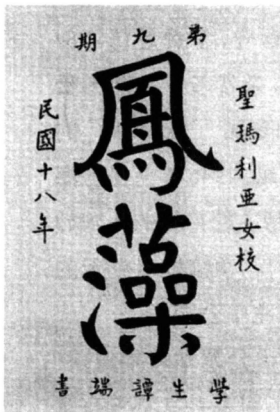 第九期
聖瑪利亞女校
鳳藻
民國十八年
學生譚端書